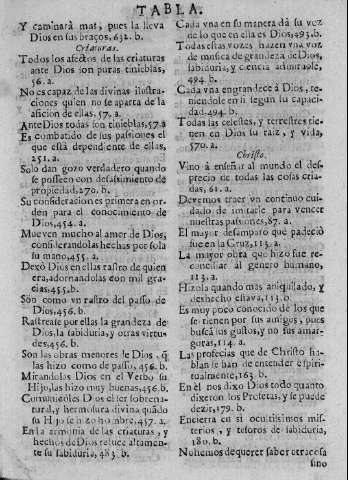 TABLA.
Y caminarà mas, pues la lleva
Dios en sus braços, 632. b.
Criaturas.
Todos los afectos de las criaturas
ante Dios son puras tinieblas,
56. a.
No es capaz de las divinas ilustra
ciones quien no se aparta de la
aficion de ellas, 57. a.
Ante Dios todas son tinieblas, 57. a
Es combatido de sus pasiones el
que està dependiente de ellas,
251. a.
Solo dan gozo verdadero quando
se posseen con desasimiento de
propiedad, 270. b.
Su consideracion es primera en or
den para el conocimiento de
Dios, 454. a.
Mueven mucho al amor de Dios,
considerandolas hechas por sola
su mano, 455. a.
Dexò Dios en ellas rastro de quien
era, adornandolas con mil gra-
cias, 455, b.
Son como vn rastro del passo de
Dios, 456. b.
Rastrease por ellas la grandeza de
Dios, la sabiduria, y otras virtu-
des, 456. b.
Son las obras menores de Dios, q̃
las hizo como de passo, 456. b.
Mirandolas Dios en el Verbo su
Hijo, las hizo muy buenas, 456. b.
Comunicòles Dios el ser sobrena-
tural, y hermosura divina quãdo
su Hijo se hizo hombre, 457. a.
En la armonia de las criaturas, y
hechos de Dios reluce altamen-
te su sabiduria, 483. b.
Cada vna en su manera dà su voz
de lo que en ella es Dios, 493. b.
Todas estas vozes hazen vna voz
de musica de grandeza de Dios,
sabiduria, y ciencia admirable,
494. b.
Cada vna engrandece à Dios, te-
niendole en si segun su capaci-
dad. 494. b.
Todas las celestes, y terrestres tie-
nen en Dios su raiz, y vida,
570. a.
Christo.
Vino à enseñar al mundo el des-
precio de todas las cosas cria-
das, 61. a.
Devemos traer vn continuo cui-
dado de imitarle para vencer
nuestras passiones, 87. a.
El mayor desamparo que padeciò
fue en la Cruz, 113. a.
La mayor obra que hizo fue re-
conciliar al genero humano,
113. a.
Hizola quando mas aniquilado, y
deshecho estava, 113. b.
Es muy poco conocido de los que
se tienen por sus amigos, pues
busca sus gustos, y no sus amar-
guras, 114. a.
Las profecias que de Christo ha-
blan se han de entender espiri-
tualmente, 163. b.
En èl nos dixo Dios todo quanto
dixeron los Profetas, y se puede
dezir, 179. b.
Encierra en si ocultissimos mis-
terios, y tesoros de sabiduria,
180. b.
No hemos de querer saber otra cosa
sino